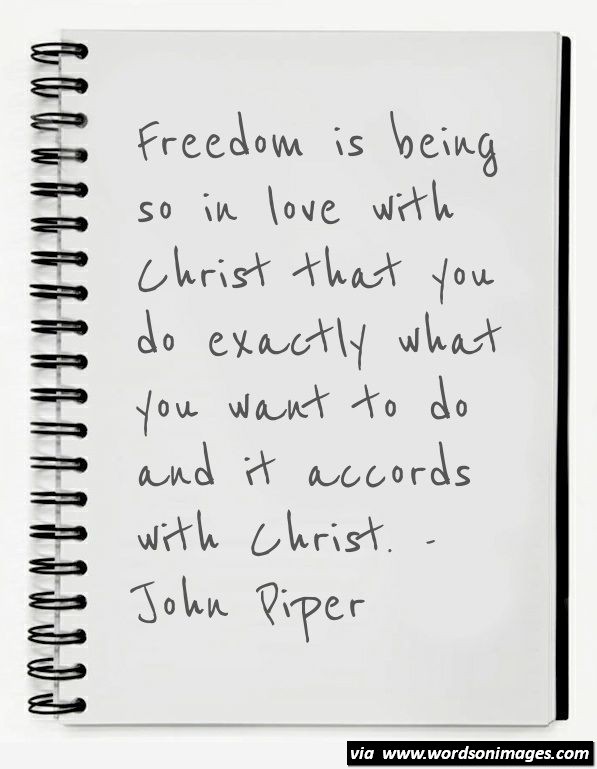 Freedom is being
so in love with
Christ that you
do exactly what
you want to do
and it accords
with Christ. -
John Piper
via www.wordsonimages.com